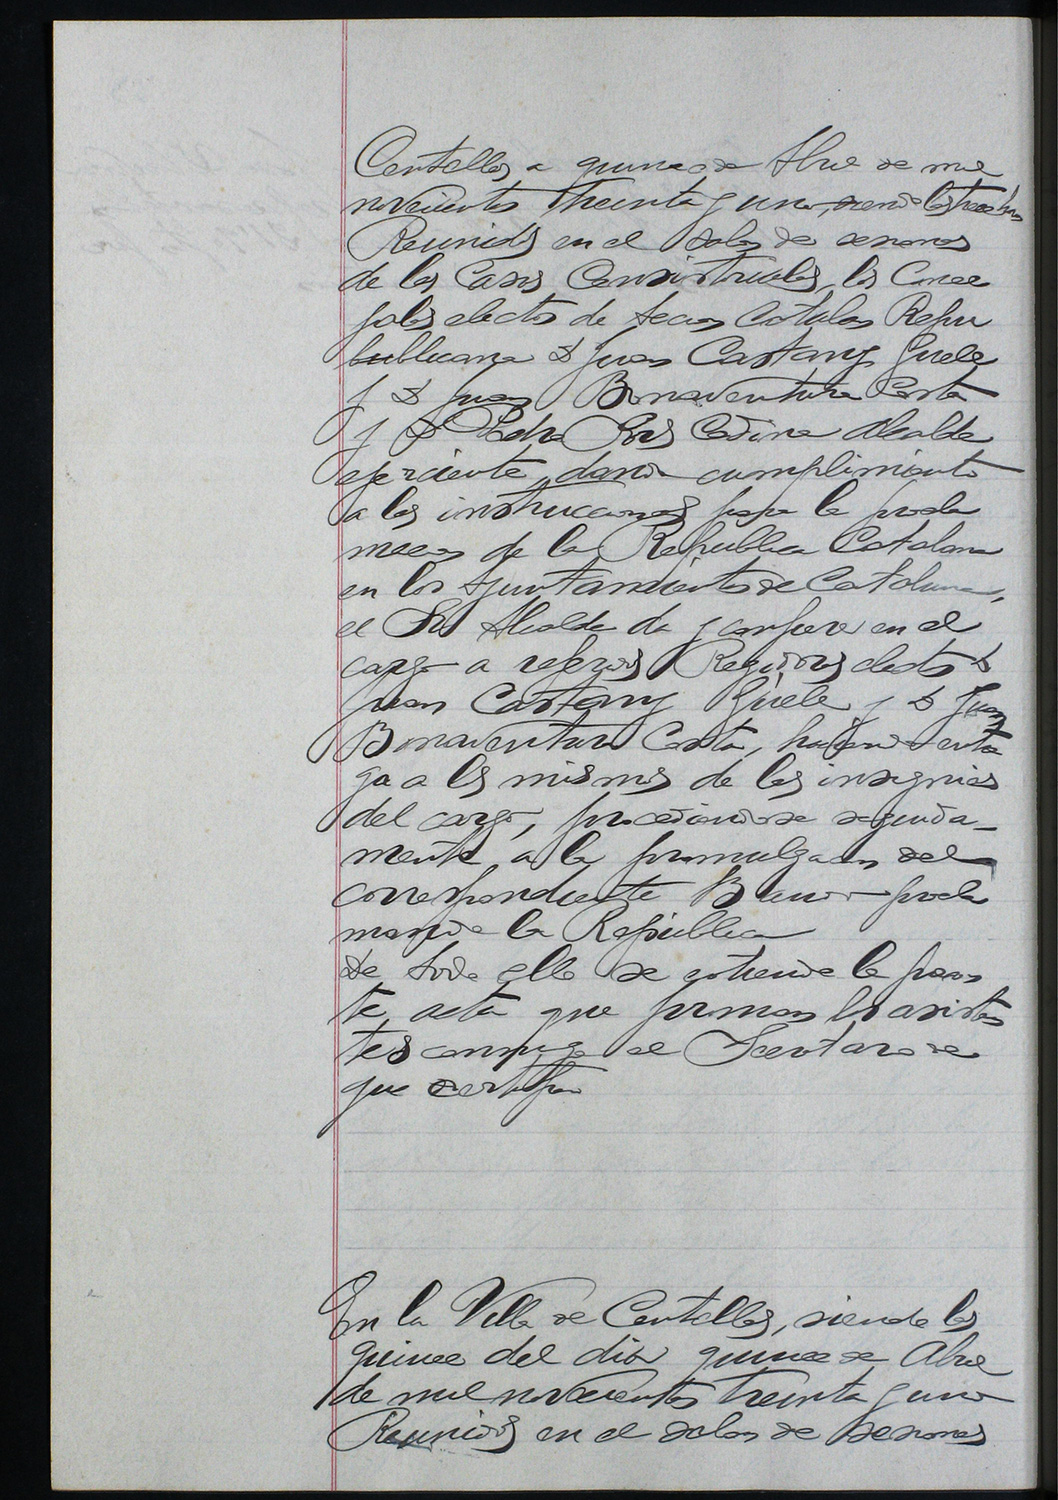 Centellas, a quince de Abril de mil
novecientos treinta y uno, siendo las trece horas
Reunidos en el salon de sesiones
de las Casas Consistoriales, los Conce
jales electos de Accion Catalana Repu
blicana D Juan Castany Güell
y D Juan Bonaventura Costa
y D Pedro Ros Cadina Alcalde
ejerciente, dando cumplimiento
a las instrucciones para la procla
macion de la Republica Catalana
en los Ayuntamientos de Cataluña,
el Sr Alcalde da y confiere en el
cargo a referidos Regidores electos D
Juan Castany Güell y D Juan
Bonaventura Costa, haciendo entre
ga a los mismos de las insignias
del cargo, procediendose seguida-
mente a la promulgacion del
correspondiente Bando procla
mando la Republica
De todo ello se extiende la presen
te acta que firman los asisten
tes conmigo el Secretario de
que certifico
En la Villa de Centellas, siendo las
quince del dia quince de Abril
de mil novecientos treinta y uno
Reunidos en el salon de sesiones